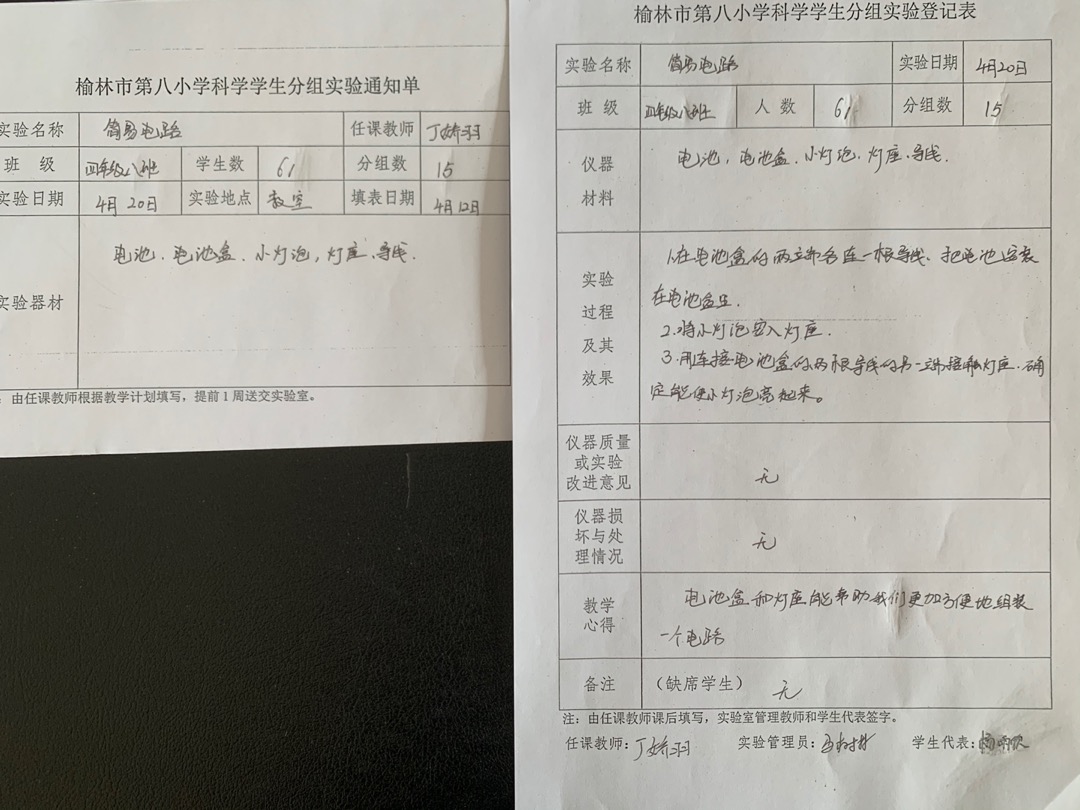 榆林市第八小学科学学生分组实验通知单
实验名称 简易电路 任课教师 丁娇羽
班 级 四年级八班 学生数 61 分组数 15
实验日期 4月20日 实验地点 教室 填表日期 4月12日
实验器材 电池、电池盒、小灯泡,灯座、导线.
:由任课教师根据教学计划填写,提前1周送交实验室。
榆林市第八小学科学学生分组实验登记表
实验名称 简易电路 实验日期 4月20日
班 级 四年级八班 人 数 61 分组数 15
仪器
材料
电池,电池盒、小灯泡,灯座、导线.
实验
过程
及其
效果
1.在电池盒的两端各连一根导线、把电池安装
在电池盒里.
2.将小灯泡安入灯座.
3.用连接电池盒的两根导线的另一端接触灯座.确
定能使小灯泡亮起来。
仪器质量
或实验
改进意见
无
仪器损
坏与处
理情况
无
教学
心得
电池盒和灯座能帮助我们更加方便地组装
一个电路
备注 (缺席学生) 无
注:由任课教师课后填写,实验室管理教师和学生代表签字。
任课教师:丁娇羽 实验管理员: 学生代表: